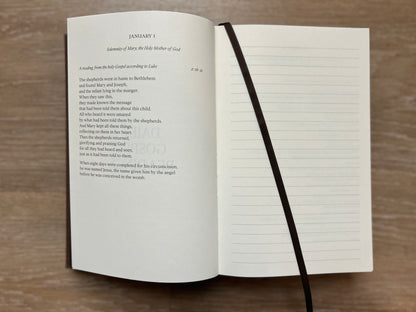 JANUARY 1
Solemnity of Mary, the Holy Mother of God
A reading from the holy Gospel according to Luke
The shepherds went in haste to Bethlehem
and found Mary and Joseph,
and the infant lying in the manger.
When they saw this,
they made known the message
that had been told them about this child.
All who heard it were amazed
by what had been told them by the shepherds.
And Mary kept all these things,
reflecting on them in her heart.
Then the shepherds returned,
glorifying and praising God
for all they had heard and seen,
just as it had been told to them.
When eight days were completed for his circumcision,
he was named Jesus, the name given him by the angel
before he was conceived in the womb.